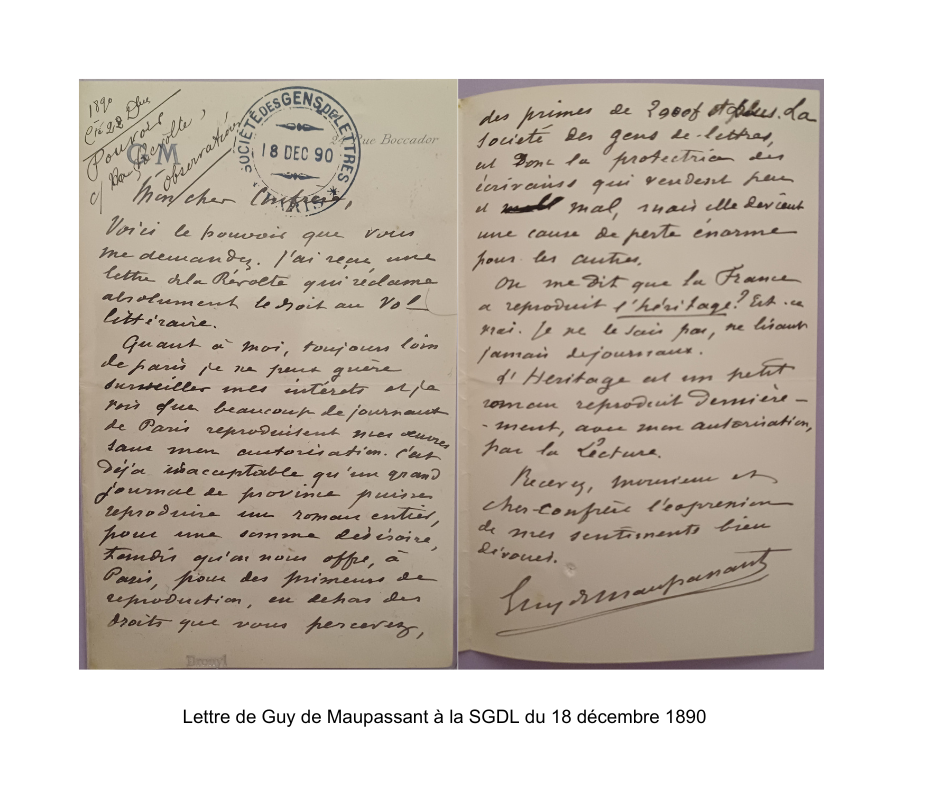 1890
Cté 22 Dbre
Pouvoir
c/ Don "La Révolte"
observations
GM
SOCIÉTÉ DES GENS DE LETTRES
18 DEC 90
PARIS
24, Rue Boccador
Mon cher Confrère,
Voici le pouvoir que vous
me demandez. J'ai reçu une
lettre de la Révolte qui réclame
absolument le droit au Vol
littéraire.
Quant à moi, toujours loin
de paris je ne peux guère
surveiller mes intérêts et je
vois que beaucoup de journaux
de Paris reproduisent mes œuvres
sans mon autorisation. C'est
déjà inacceptable qu'un grand
journal de province puisse
reproduire un roman entier,
pour une somme dérisoire,
tandis qu'on nous offre, à
Paris, pour des primeurs de
reproduction, en dehors des
droits que vous percevez,
des primes de 2000f et plus. La
société des gens de-lettres,
est Donc la protectrice des
écrivains qui vendent peu
et mal, mais elle devient
une cause de perte énorme
pour les autres.
On me dit que la France
a reproduit l'héritage? Est-ce
vrai. Je ne le sais pas, ne lisant
jamais de journaux.
L'Héritage est un petit
roman reproduit Dernière-
-ment, avec mon autorisation,
par la Lecture.
Recevez, monsieur et
cher-confrère l'expression
de mes sentiments bien
dévoués.
Guy de Maupassant
Lettre de Guy de Maupassant à la SGDL du 18 décembre 1890